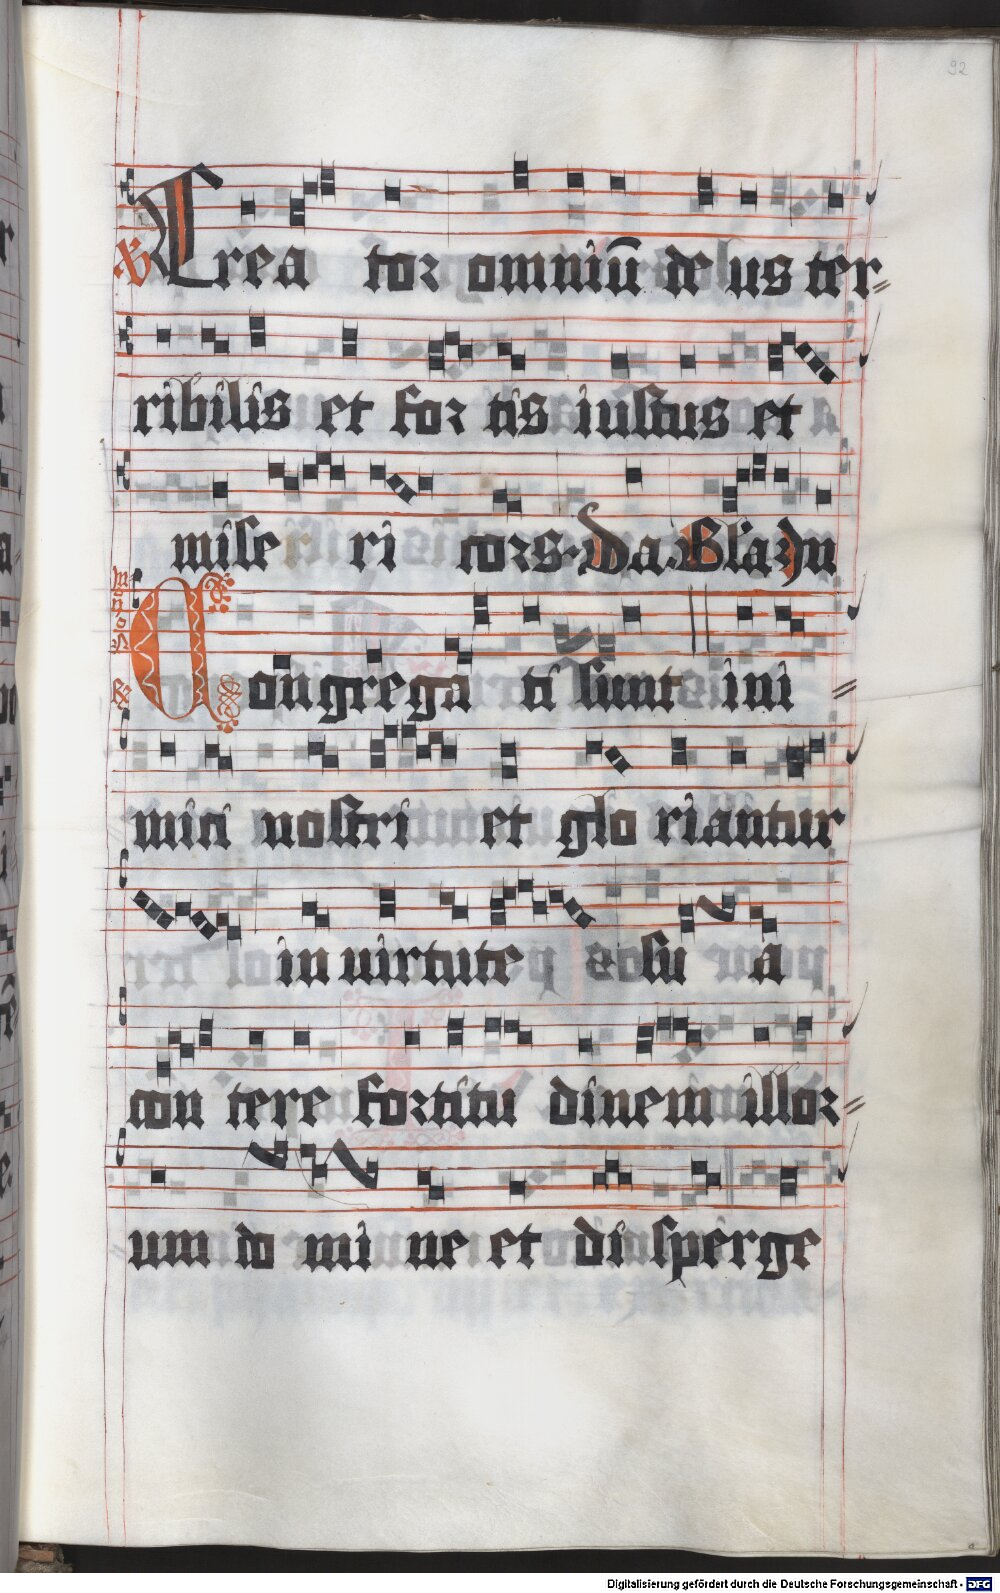 92
℣ Crea tor omniū de us ter=
ribilis et for tis iustus et
mise ri cors. Da. Gla ℟ In
Congrega ti sunt ini=
mici nostri et glo riantur
in uirtute su a
con tere fortitu dinem illor=
um do mi ne et disperge
Digitalisierung gefördert durch die Deutsche Forschungsgemeinschaft - DFG